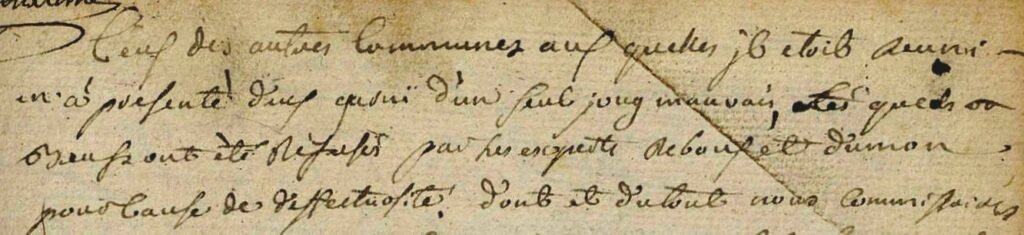 Ceux des autres Communes aux quelles jl etoit Reuni
m'a présenté deux garni d'un seul joug mauvais, lesquels
Bœufs ont été Réfusés par les experts Rebouf et Dumon
pour Cause de deffectuosité. dont et dutout nous Commissaires